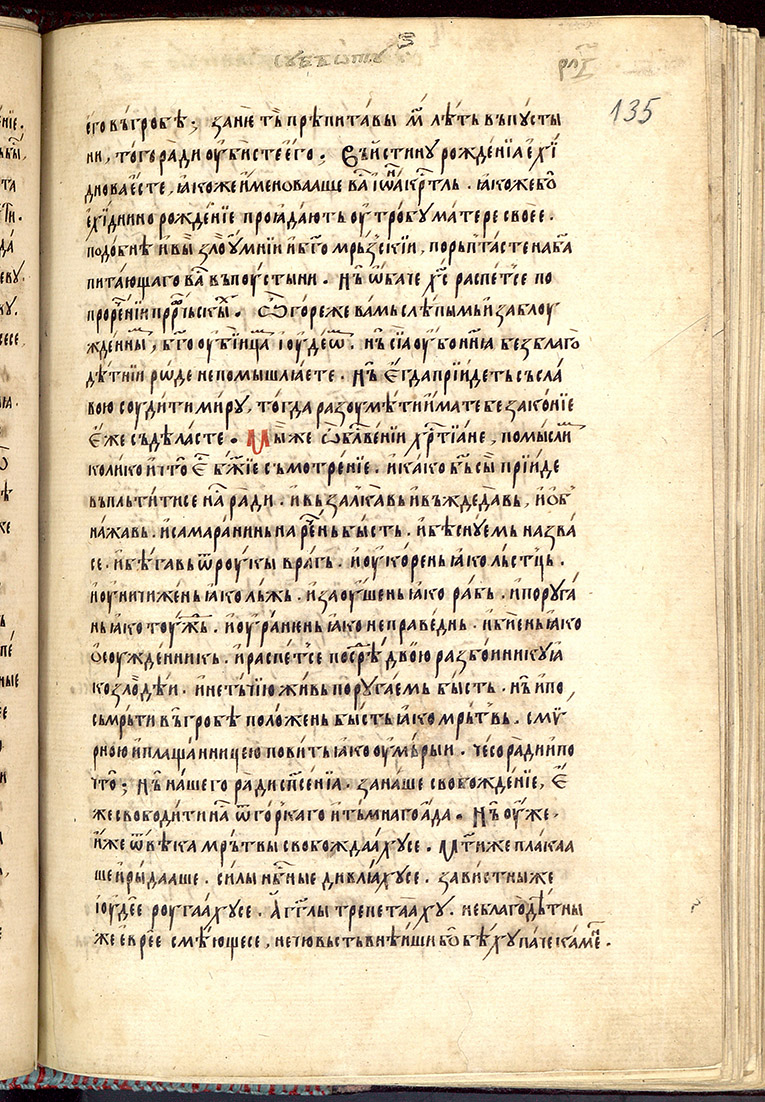 сꙋбѡтꙋ
135
его въгробѣ; занѥ тѣ прѣпитавы м҃ лѣть въпꙋсты
ни, того ради оубистеего. Въистинꙋ рожденїа ехї
дноваесте, ꙗкоже именоваше ва҃ їѡ҃а крⷭ҇тль. ꙗкожебо
ехїднино рожденїе проꙗдають оутробꙋ матере своее.
подобнѣ ивы злоумнїи ибг҃омрьзскїи, порьптасте наба
питающаго ва҃ въпоустыни. Нь ѡбаче хс҃ распетсе по
прорⷱ҇енїи прⷪ҇рчьскы. Ѿгореже вамь слѣпымь и заблоу
жденны, бг҃оубїица їоудеѡ. нь сїа оубо нн҃ꙗ безблаго
дѣтнїи роде непомышлꙗете. Нь егда прїидеть съсла
вою соудити мирꙋ, тогда разоумѣти имате безаконїе
еже съдѣласте. Мыже ѡ бл҃венїи хрⷭ҇тїане, помысли
колико ичто е҃ бж҃їе съмотренїе. икако бь҃ сы прїиде
въпльтитисе на҃ ради. ивьзалкавь ивъждедавь, иоб
нажавь. исамаранинь наре҃нь бысть. ибѣснꙋемь назва
се. ибѣгавь ѿ роукы врагь. иоукорень ꙗко льстць.
иоуничижень ꙗко льжь. изаоушень ꙗко рабь. ипорꙋга
нь ꙗко тоуж҃ь. иоуранень ꙗко неправеднь. ибїень ꙗко
осоужденникь. ираспетсе посрⷣѣ двою разбоиникꙋ ꙗ
ко злодѣи. инетьїю живь порꙋгаемь бысть. нь ипо
сьмрьти въгробѣ положень бысть ꙗко мрьтвь. смѵ
рною иплащаницею повить ꙗко оумьрыи. чесоради ипо
что; Нь нашего ради сп҃сенїа. за наше свобожденїе, е
же свободити на҃ ѿ горкаго итьмнаго ада. Нь оуже,
иже ѿ вѣка мрьтвы свобождаахꙋсе. Мт҃и же плакаа
ше и рыдааше. силы нбⷭ҇ные дивлꙗахꙋсе. завистныже
їоудѣе роугаахꙋсе. аг҃глы трепетаахꙋ. неблагодѣтны
же евреe смѣющесе, нечювьствнѣиши бо бѣхꙋ паче каменї.